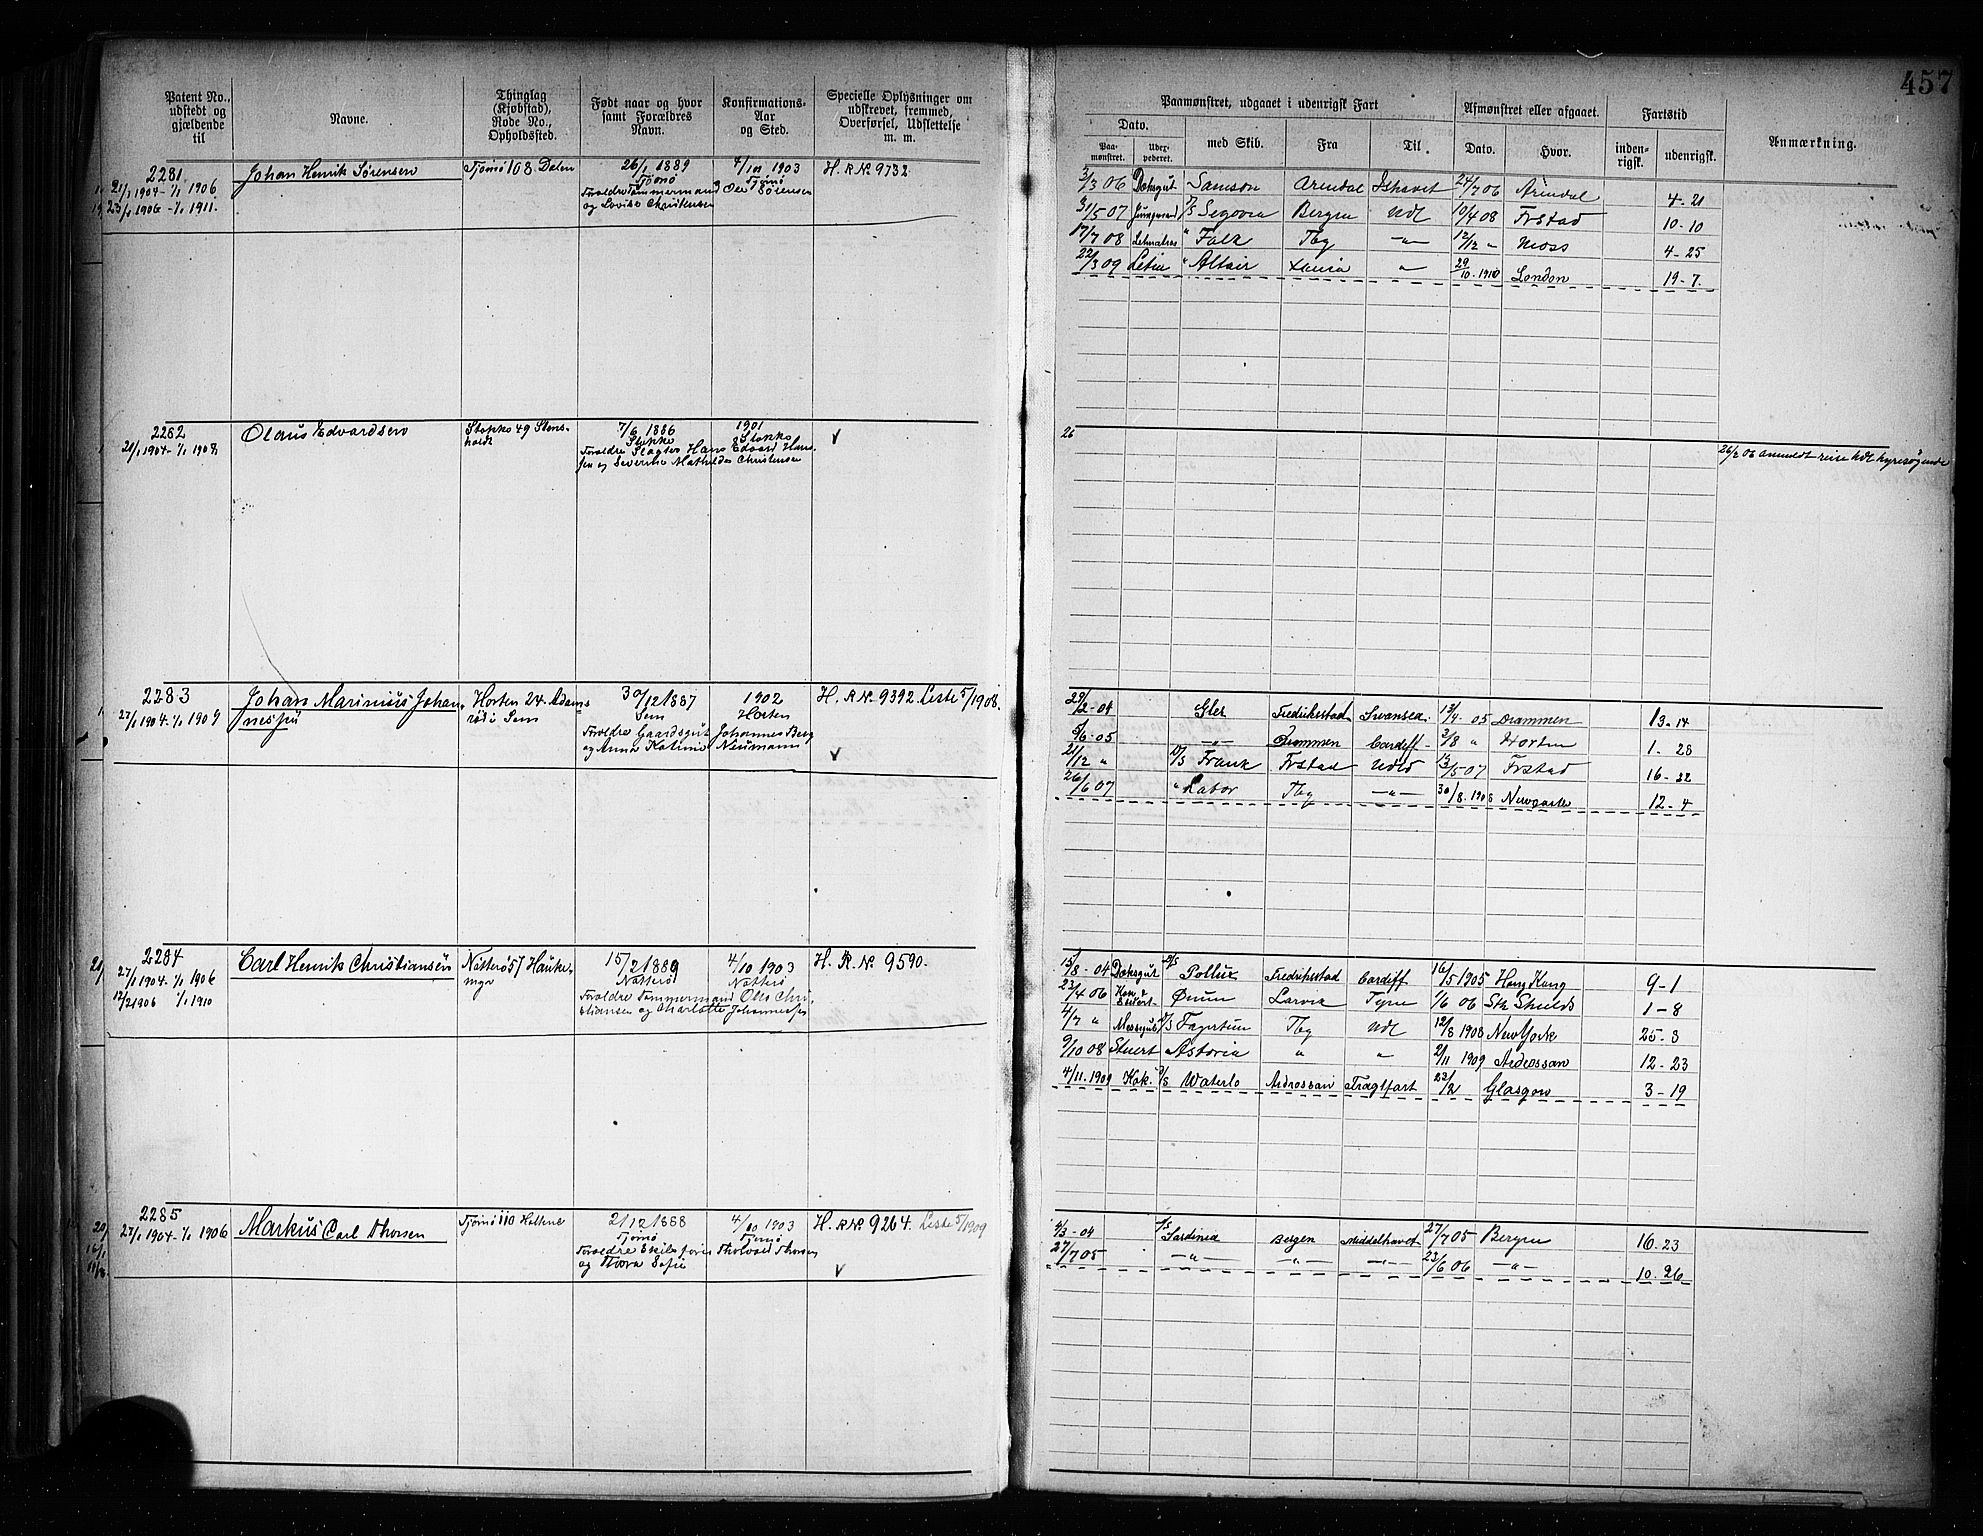 457
Patent No., udstedt og gjældende til
Navne.
Thinglag (Kjøbstad), Rode No., Opholdssted.
Født naar og hvor samt Forældres Navn.
Konfirmations-Aar og Sted.
Specielle Oplysninger om udskrevet, fremmed, Overførsel, Udslettelse m. m.
Paamønstret, udgaaet i udenrigsk Fart
Afmønstret eller afgaaet.
Fartstid
Anmærkning.
Dato.
Paa-mønstret.
med Skib.
Fra
Til
Dato.
Hvor.
inden-rigsk.
udenrigsk.
2281
21/1 1904 - 1/1 1906
23/1 1906 - 1/1 1911.
Johan Henrik Sørensen
Tjømø 108 Dalen
26/1 1889
Tjømø
Forældre Tømmermand Ole Sørensen
og Lovise Christensen
4/10 1903
Tjømø
H. R № 9732
3/3 06 Dæksgut Samson Arendal Ishavet 24/7 06 Arendal 4-21
31/5 07 Jungmand D/S Segovia Bergen Udl 10/4 08 Frstad 10-10
17/7 08 Letmatros " Falk Tbg -"- 12/12 " Moss 4-25
22/3 09 " Altair " 29/10.1910 London 19-7.
2282
21/1 1904 - 1/1 1908
Olaus Edvardsen
Stokke 49 Stens-
holdt
7/6 1886
Stokke
Forældre Slagter Hans Edvard Han-
sen og Severine Mathilde Christensen
1901
Stokke
26
26/2 06 anmeldt reise Udl hyresøgende
2283
27/1 1904 - 1/1 1909
Johan Marinius Johan-
nesen
Horten 24. Adams
rød i Sem
30/12 1887
Sem
Forældre Gaardsgut Johannes Berg
og Anna Katrine Neumann
1902
Horten
H. R № 9392 Liste 5/1908.
29/2-04 Gler Fredrikstad Swansea. 13/4-05 Drammen 13-14
5/6-05 -"- Drammen Cardiff- 2/8 " Horten 1-28
21/12 " D/S Frank Frstad Udld 13/5 07 Frstad 16-22
26/6 07 " Labor Tbg -"- 30/8.1908 Newcastle 12-4
2284
27/1 1904 - 1/1 1906
12/2 1906 1/1 1910
Carl Henrik Christiansen
Nøtterø 57 Hauke-
15/2 1889
Nøtterø
Forældre Tømmermand Otto Chri-
stiansen og Charlotte Johannesen
4/10 1903
Nøtterø
H. R. № 9590.
15/8-04 Dæksgut D/S Pollux Fredrikstad Cardiff 16/5 1905 Hong Kong 9-1
23/4 06 Ørnen Larvik Tyne 1/6 06 Sth Shields 1-8
4/7 " Messegut D/S Fagertun Tbg Udl 12/8 1908 New York 25-3
9/10 08 Stuert " Astoria " " 2/11 1909 Ardrossan 12-23
4/11.1909 Kok. D/S Waterlo Ardrossan Fragtfart 22/2 Glasgow 3-19
2285
27/1 1904 - 1/1 1906
Markus Carl Thorsen
Tjømø 110 Holtene
21/12 1888
Tjømø
Forældre Skibsfører Tholvald Thorsen
og Thora Sofie
4/10 1903
Tjømø
H. R № 9264. Liste 5/1909
4/3-04 D/S Sardinia Bergen Middelhavet 27/7 05 Bergen 16-23
27/7 05 -"- -"- -"- 23/6 06 -"- 10-26